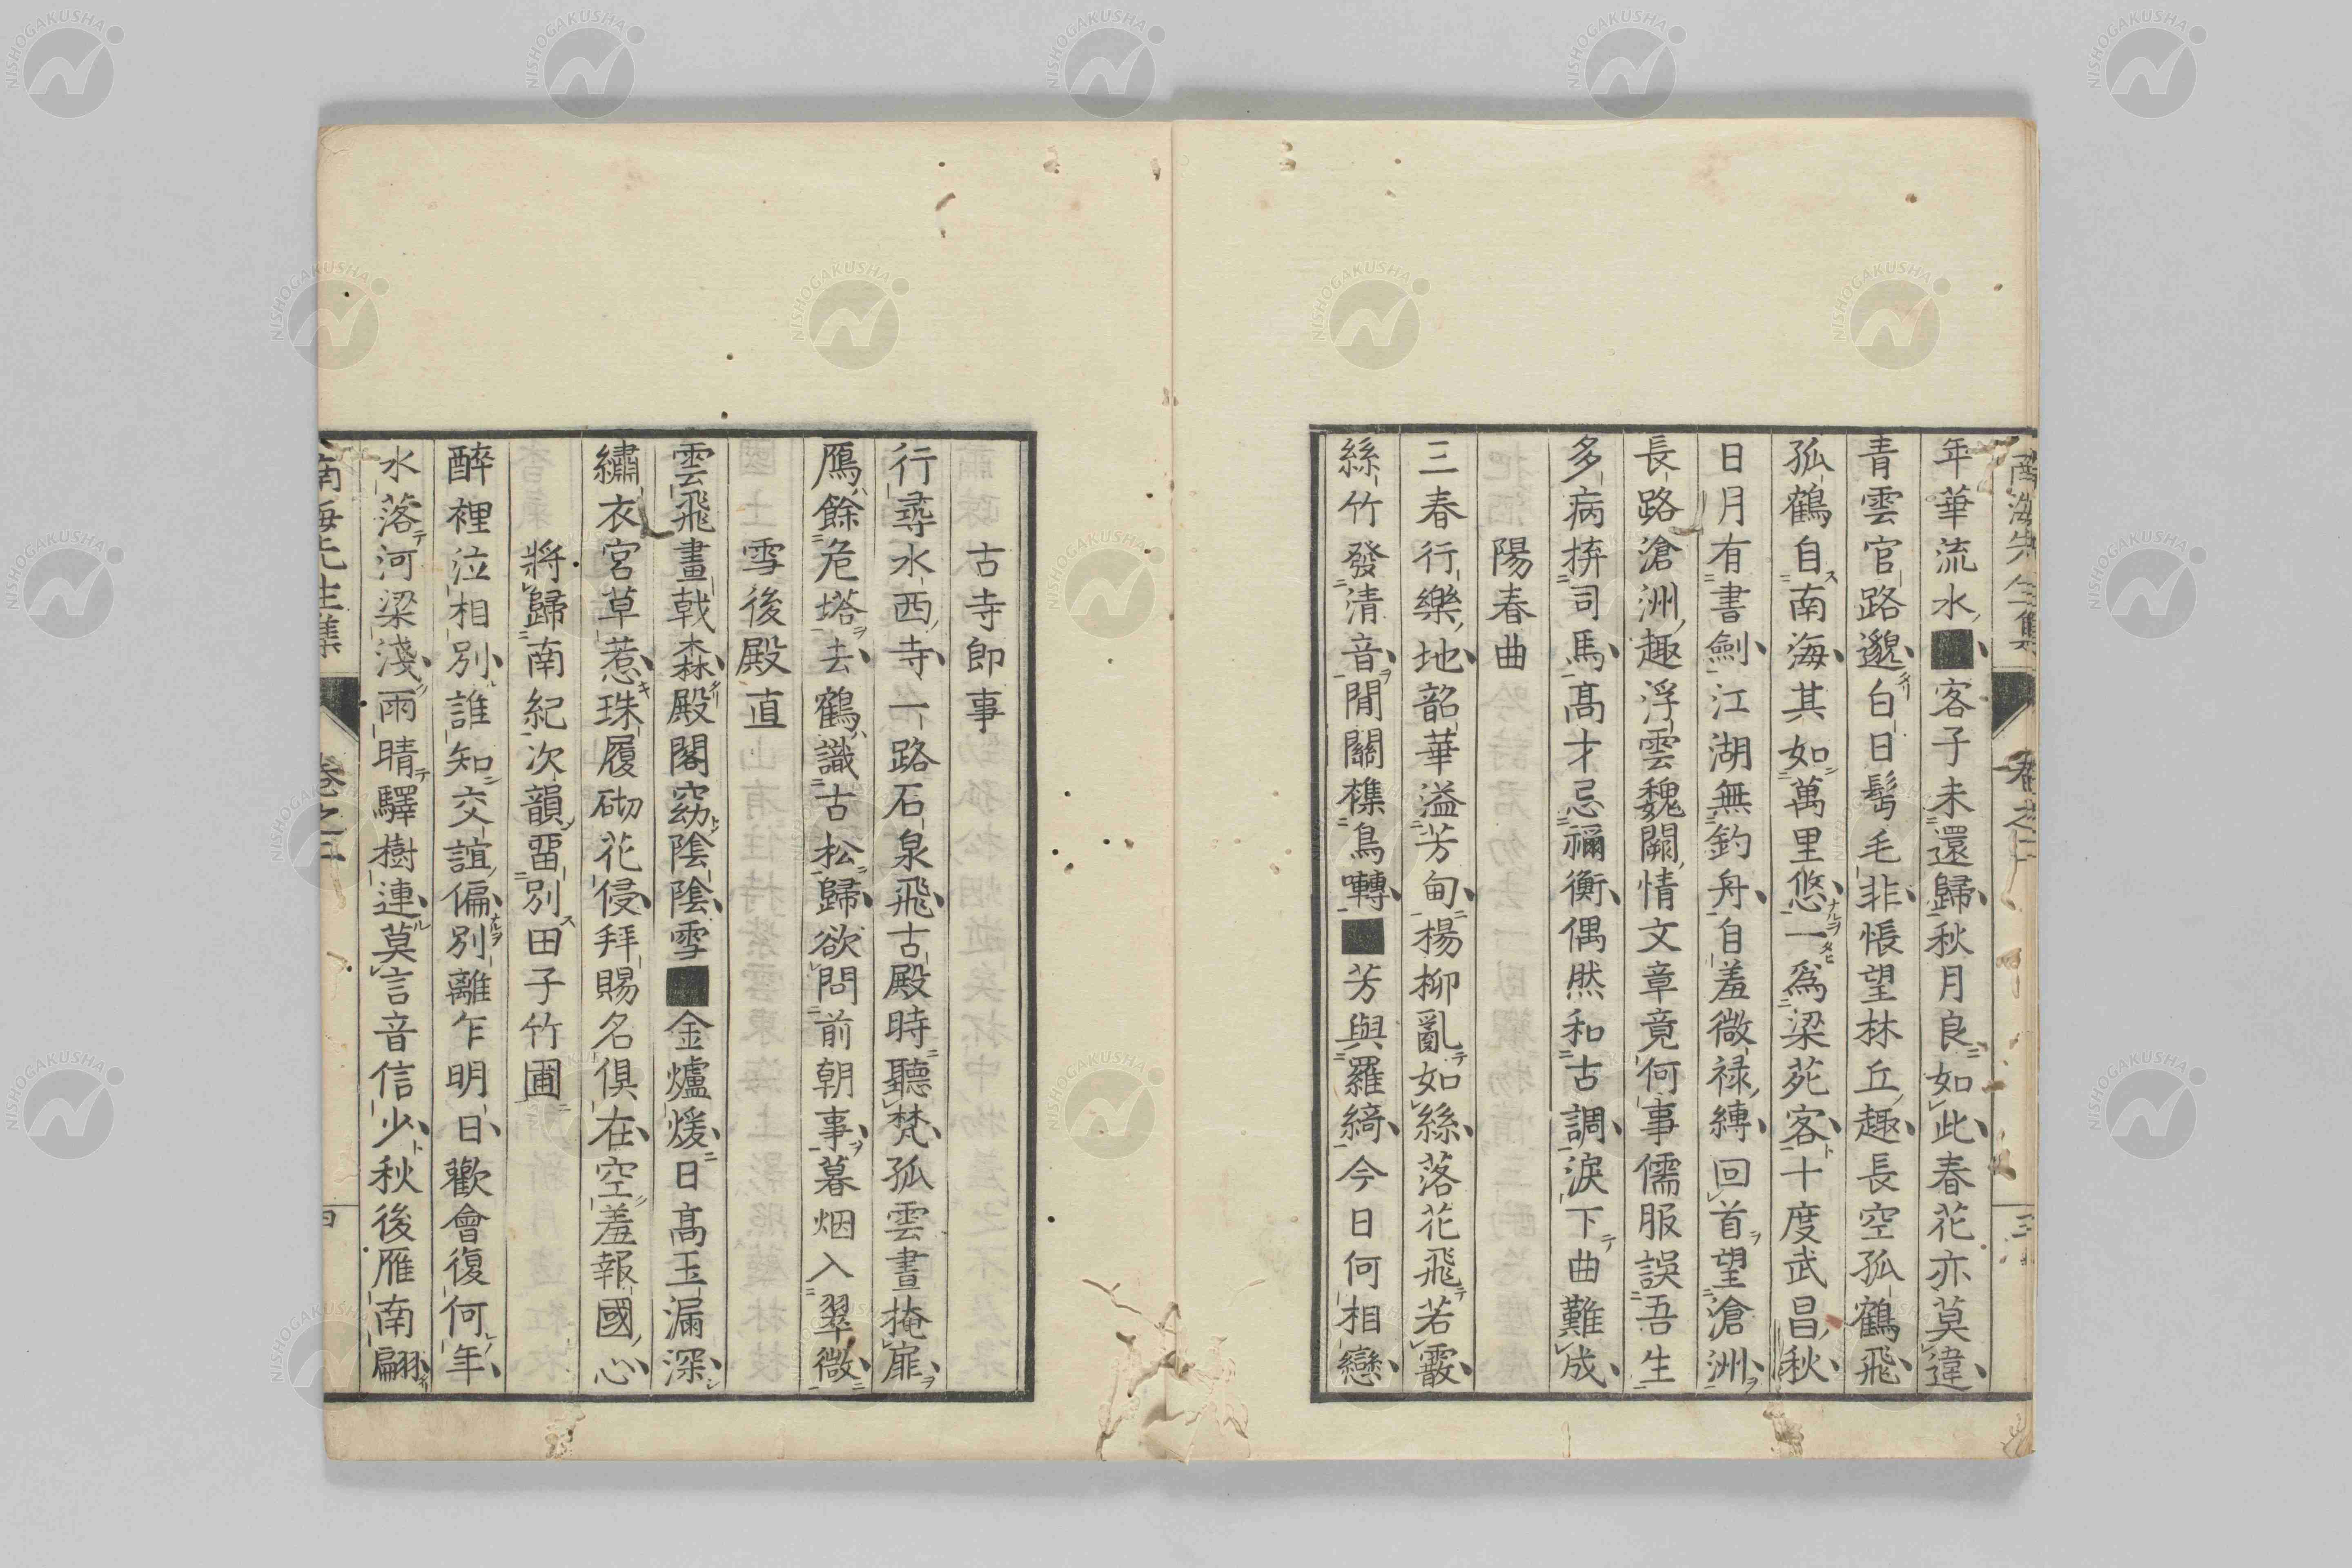 南海先生集
卷之二
三
年華流水■客子未還歸秋月良如此春花亦莫違
青雲官路邈白日髩毛非悵望林丘趣長空孤鶴飛
孤鶴自南海其如萬里悠一爲梁苑客十度武昌秋
日月有書劍江湖無釣舟自羞微祿縛回首望滄洲
長路滄洲趣浮雲魏闕情文章竟何事儒服誤吾生
多病拚司馬高才忌禰衡偶然和古調淚下曲難成
陽春曲
三春行樂地韶華溢芳甸楊柳亂如絲落花飛若霰
絲竹發清音閒關襍鳥囀■芳與羅綺今日何相戀
古寺卽事
行尋水西寺一路石泉飛古殿時聽梵孤雲晝掩扉
鴈餘危塔去鶴識古松歸欲問前朝事暮烟入翠微
雪後殿直
雲飛畫戟森殿閣窈陰陰雪■金爐煖日高玉漏深
繡衣宮草惹珠履砌花侵拜賜名俱在空羞報國心
將歸南紀次韻畱別田子竹圃
醉裡泣相別誰知交誼偏別離乍明日歡會復何年
水落河梁淺雨晴驛樹連莫言音信少秋後雁南翩
南海先生集
卷之二
四
NISHOGAKUSHA